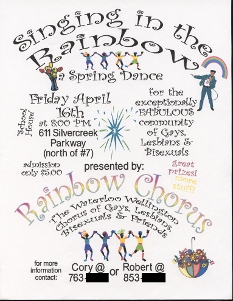 Singing in the
Rainbow
a Spring Dance
Friday April
16th
at 8:00 PM
School House
611 Silvercreek
Parkway
(north of #7)
for the
exceptionally
FABULOUS
community
of Gays,
Lesbians &
Bisexuals
admission
only $5.00
presented by:
great
prizes!
stuff!
Rainbow Chorus
The Waterloo Wellington
Chorus of Gays, Lesbians,
Bisexuals & Friends
for more
information
contact:
Cory @
763-
or
Robert @
853-